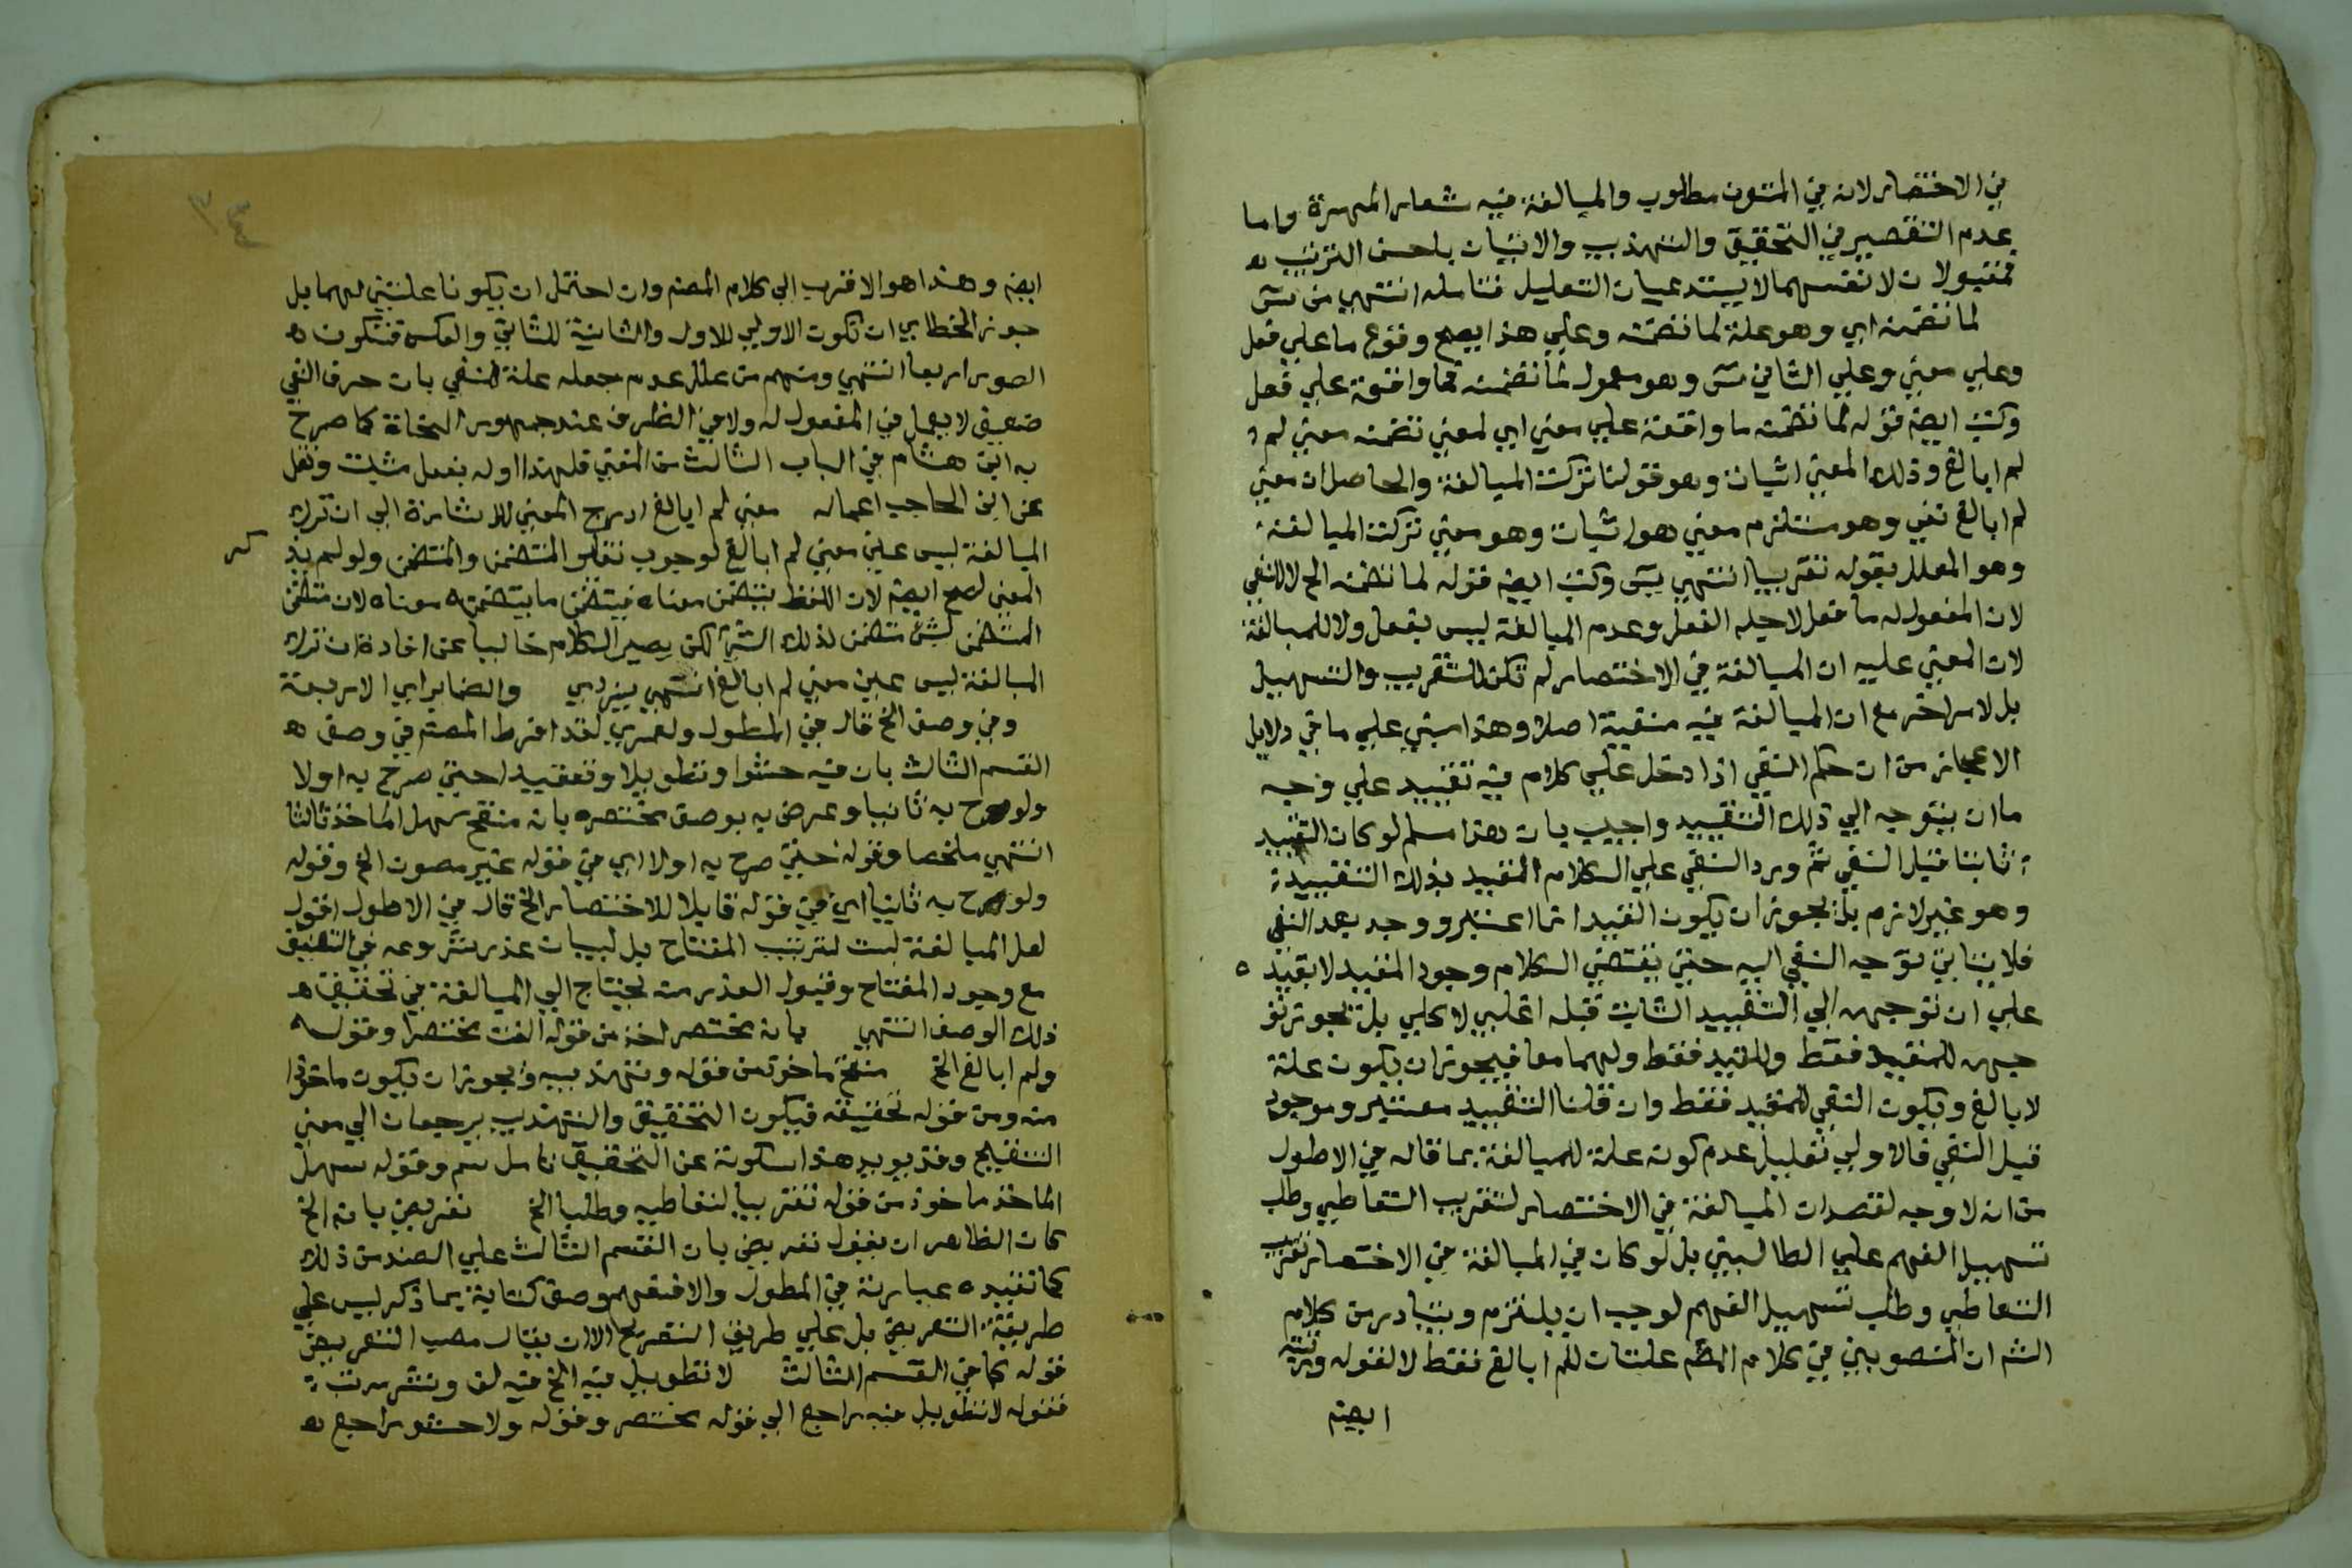 في الاختصار لانه في المتون مطلوب والمبالغة فيه شعار المهرة واما
عدم التقصير في التحقيق والتهذيب والاتيان باحسن الترتيب
فمقبولان لانفسهما لا يستدعيان التعليل فتامله انتهى من س
لما تضمنه اي وهو علة لما تضمنه وعلي هذا يصح وقوع ما علي فعل
وعلي معني وعلي الثاني س وهو معمول لما تضمنه فما واقعة علي فعل
وكتب ايضم قوله لما تضمنه ما واقعة علي معني اي لمعني تضمنه معني لم
لم ابالغ وذلك المعني اثبات وهو قولنا تركت المبالغة والحاصل ان معني
لم ابالغ نفي وهو مستلزم معني هو اثبات وهو معني تركت المبالغة
وهو المعلل بقوله تقريبا انتهى يس وكتب ايضم قوله لما تضمنه الخ لا للنفي
لان المفعول له ما فعل لاجله الفعل وعدم المبالغة ليس بفعل ولا للمبالغة
لان المعني عليه ان المبالغة في الاختصار لم تكن للتقريب والتسهيل
بل لامر اخر مع ان المبالغة فيه منفية اصلا وهذا مبني علي ما في دلايل
الاعجاز من ان حكم النفي اذا دخل علي كلام فيه تقييد علي وجه
ما ان يتوجه الي ذلك التقييد واجيب بان هذا مسلم لو كان التقييد
ثابتا قبل النفي ثم ورد النفي علي الكلام المقيد بذلك التقييد
وهو غير لازم بل يجوز ان يكون القيد انما اعتبر ووجد بعد النفي
فلا يتاتي توجه النفي اليه حتي يقتضي الكلام وجود المقيد لا بقيد
علي ان توجهه الي التقييد الثابت قبله اغلبي لا كلي بل يجوز تو
جهه للمقيد فقط وللقيد فقط ولهما معا فيجوز ان يكون علة
لابالغ ويكون النفي للمقيد فقط وان قلنا التقييد معتبر وموجود
قبل النفي فالاولي تعليل عدم كونه علة للمبالغة بما قاله في الاطول
من انه لا وجه لقصدات المبالغة في الاختصار لتقريب التعاطي وطلب
تسهيل الفهم علي الطالبين بل لو كان في المبالغة في الاختصار تقريب
التعاطي وطلب تسهيل الفهم لوجب ان يلتزم ويتبادر من كلام
الشم ان المنصوبين في كلام المصم علتان للم ابالغ فقط لا لقوله ورتبته
ايضم
٣٤
ايضم وهذا هو الاقرب الي كلام المصم وان احتمل ان يكونا علتين لهما بل
جوز الخطابي ان تكون الاولي للاول والثانية للثاني والعكس فتكون
الصور اربعا انتهى ومنهم من علل عدم جعله علة للنفي بان حرف النفي
ضعيف لا يعمل في المفعول له ولا في الظرف عند جمهور النحاة كما صرح
به ابن هشام في الباب الثالث من المغني فلهذا اوله بفعل مثبت ونقل
عن ابن الحاجب اعماله معني لم ابالغ ادرج المعني للاشارة الي ان ترك
المبالغة ليس عين معني لم ابالغ لوجوب تغاير المتضمن والمتضمن ولو لم يذ
كر
المعني لصح ايضم لان اللفظ يتضمن معناه فيتضمن ما يتضمنه معناه لان متضمن
المتضمن لشئ متضمن لذلك الشئ لكن يصير الكلام خاليا عن افادة ان ترك
المبالغة ليس عين معني لم ابالغ انتهى يزدي والضماير اي الاربعة
وفي وصف الخ قال في المطول ولعمري لقد افرط المصم في وصف
القسم الثالث بان فيه حشوا وتطويلا وتعقيدا حتي صرح به اولا
ولوح به ثانيا وعرض به بوصف مختصره بانه منقح سهل الماخذ ثالثا
انتهى ملخصا وقوله حتي صرح به اولا اي في قوله غير مصون الخ وقوله
ولوح به ثانيا اي في قوله قابلا للاختصار الخ قال في الاطول اقول
لعل المبالغة ليست لترتيب المفتاح بل لبيان عذر شروعه في التصنيف
مع وجود المفتاح وقبول العذر منه يحتاج الي المبالغة في تحقيق
ذلك الوصف انتهى بانه مختصر اخذ من قوله الفت مختصرا وقوله
ولم ابالغ الخ منقح ماخوذ من قوله وتهذيبه ويجوز ان يكون ماخوذا
منه ومن قوله تحقيقه فيكون التحقيق والتهذيب يرجعان الي معني
التنقيح وقد يويد هذا سكوته عن التحقيق تامل سم وقوله سهل
الماخذ ماخوذ من قوله تقريبا لتعاطيه وطلبا الخ تعريض بانه الخ
كان الظاهر ان يقول تعريض بان القسم الثالث علي الضد من ذلك
كما تفيده عبارته في المطول والافقهم وصف كتابه بما ذكر ليس علي
طريقة التعريض بل علي طريق التصريح الا ان يقال مصب التعريض
قوله كما في القسم الثالث لا تطويل فيه الخ فيه لف ونشر مرتب
فقوله لا تطويل فيه راجع الي قوله مختصر وقوله ولا حشو راجع